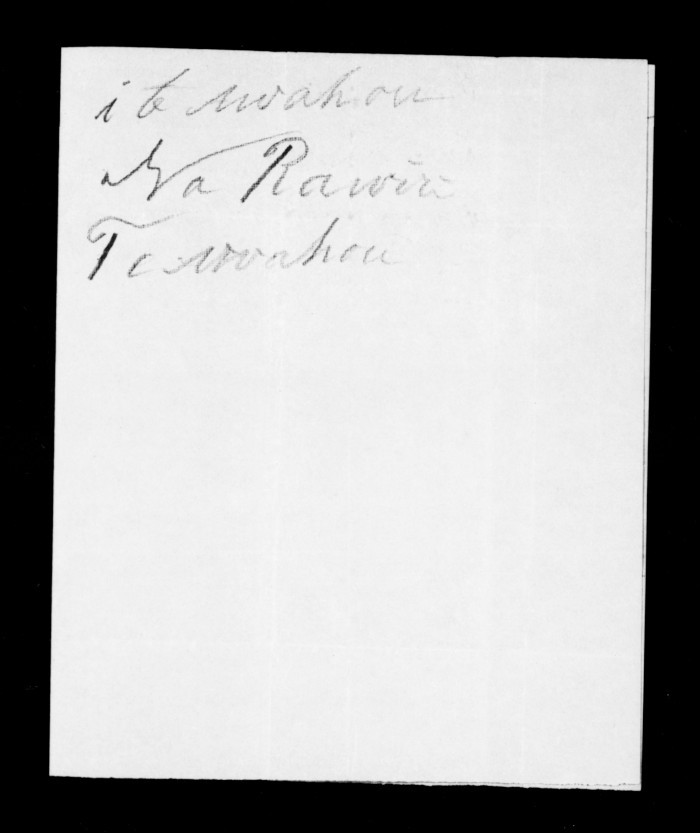 i te Awahou
Na Rawiri
Te Awahou